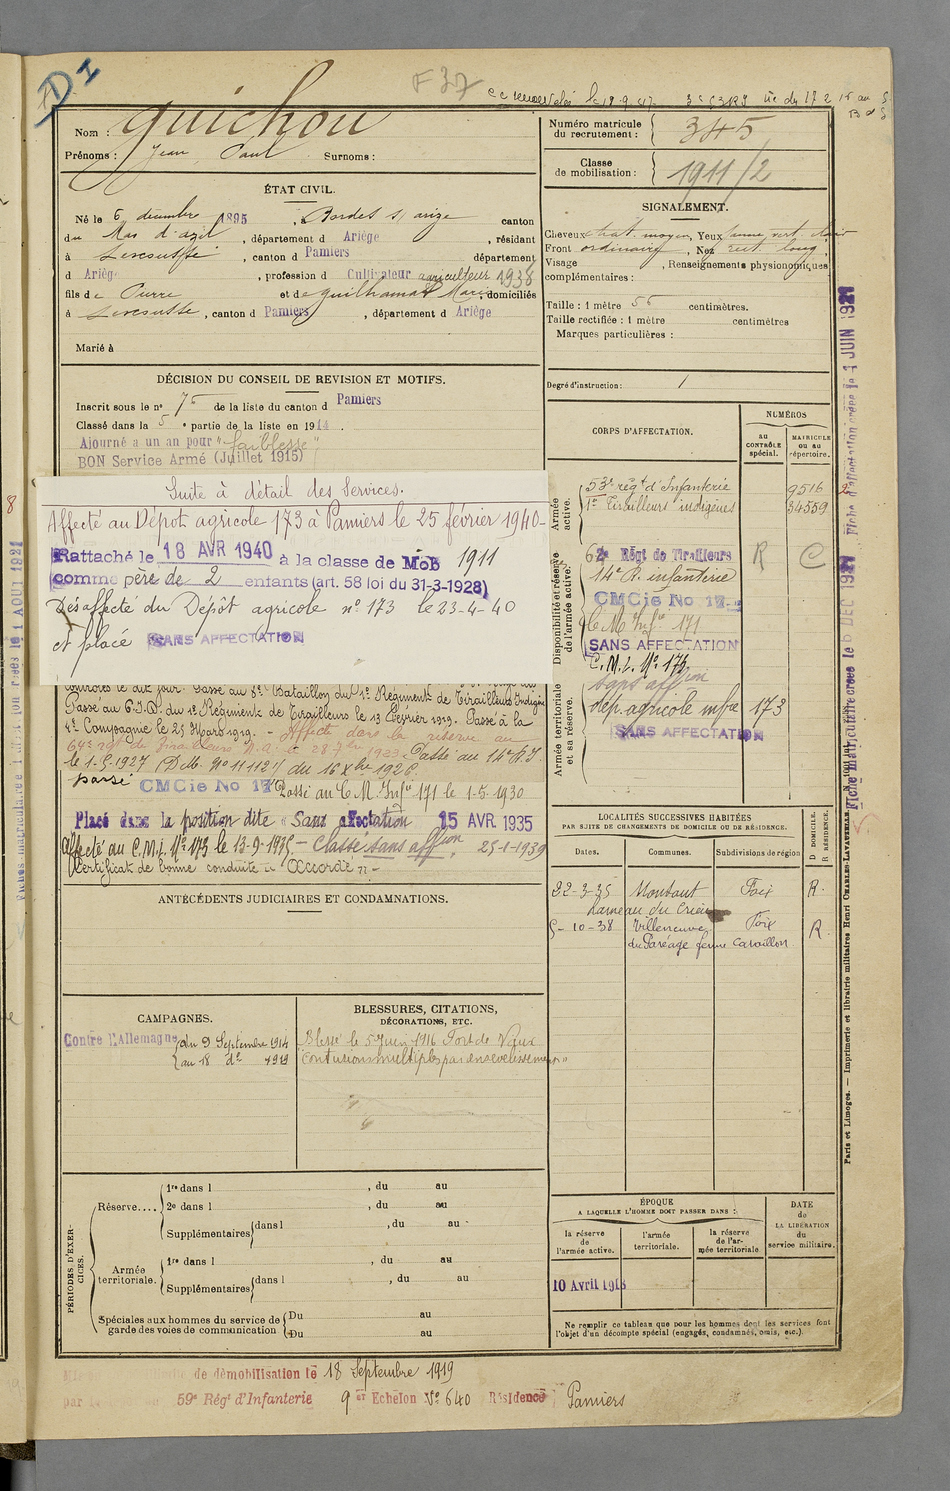 DI
F 37
Nom : Guichou
Prénoms : Jean Paul Surnoms :
Numéro matricule du recrutement : 345
Classe de mobilisation : 1911/2
ÉTAT CIVIL.
Né le 6 décembre 1895, à Bordes s/ arize canton
du Mas d'azil, département d Ariège, résidant
à Lescousse, canton d Pamiers département
d Ariège, profession d Cultivateur agriculteur 1938
fils de Pierre et de Guilhamat Marie, domiciliés
à Lescousse, canton d Pamiers, département d Ariège
Marié à
SIGNALEMENT.
Cheveux chât. moyen, Yeux jaune vert clair
Front ordinaire, Nez rect. long,
Visage , Renseignements physionomiques
complémentaires :
Taille : 1 mètre 56 centimètres.
Taille rectifiée : 1 mètre centimètres
Marques particulières :
Degré d'instruction : 1
DÉCISION DU CONSEIL DE REVISION ET MOTIFS.
Inscrit sous le n° 75 de la liste du canton d Pamiers
Classé dans la 5e partie de la liste en 1914.
Ajourné a un an pour "faiblesse"
BON Service Armé (Juillet 1915)
Suite à détail des Services.
Affecté au Dépôt agricole 173 à Pamiers le 25 février 1940-
Rattaché le 18 AVR 1940 à la classe de MoB 1911
comme père de 2 enfants (art. 58 loi du 31-3-1928)
Désaffecté du Dépôt agricole n° 173 le 23-4-40
et placé SANS AFFECTATION
contrôles le dit jour. Passé au 8e Bataillon du 1er Régiment de Tirailleurs Indigènes
Passé au C.I.D. du 1er Régiment de Tirailleurs le 13 Février 1919. Passé à la
4e Compagnie le 25 Mars 1919. - Affecté dans la réserve au
64e rgt de Tirailleurs N.A. le 28 7bre 1923. Passé au 14e R.I.
le 1-5-1927 (D.M. N° 11112 1/1 du 16 Xbre 1926.
passé CMCie No 17 Passé au C.M. Infie 171 le 1-5-1930
Placé dans la position dite « Sans affectation 15 AVR 1935
Affecté au C.M.I. N° 173 le 13-9-1935 - Classé sans affion 25-1-1939
Certificat de bonne conduite « Accordé » -
CORPS D'AFFECTATION.
NUMÉROS
au CONTRÔLE spécial.
MATRICULE ou au répertoire.
Armée active.
53e régt d'Infanterie 9516
1er Tirailleurs indigènes 34559
Disponibilité et réserve de l'armée active.
62e Régt de Tirailleurs R C
14e R. infanterie
CMCie No 17
C. M. Infie 171
SANS AFFECTATION
C.M.I. N° 173
Sans affion
Armée territoriale et sa réserve.
dép. agricole mfre 173
SANS AFFECTATION
ANTÉCÉDENTS JUDICIAIRES ET CONDAMNATIONS.
LOCALITÉS SUCCESSIVES HABITÉES
PAR SUITE DE CHANGEMENTS DE DOMICILE OU DE RÉSIDENCE.
Dates. Communes. Subdivisions de région D DOMICILE. R RÉSIDENCE.
22-3-35 Montaut Foix R.
hameau du Crieu
5-10-38 Villeneuve Foix R.
du Paréage ferme Cavaillon
CAMPAGNES.
Contre l'Allemagne du 9 Septembre 1914
au 18 do 1919
BLESSURES, CITATIONS, DÉCORATIONS, ETC.
Blessé le 5 Juin 1916 Fort de Vaux
"Contusions multiples par ensevelissement"
PÉRIODES D'EXERCICES.
Réserve.... 1re dans l , du au
2e dans l , du au
Supplémentaires dans l , du au
Armée territoriale. 1re dans l , du au
Supplémentaires dans l , du au
Spéciales aux hommes du service de garde des voies de communication
Du au
Du au
ÉPOQUE
A LAQUELLE L'HOMME DOIT PASSER DANS :
la réserve de l'armée active.
l'armée territoriale.
la réserve de l'armée territoriale
DATE de LA LIBÉRATION du service militaire.
10 Avril 1918
Ne remplir ce tableau que pour les hommes dont les services font
l'objet d'un décompte spécial (engagés, condamnés, omis, etc.)
de démobilisation le 18 Septembre 1919
par 59e Régt d'Infanterie 9e Echelon N° 640 Résidence Pamiers
Fiche d'affectation créée le 1 JUIN 1921
Fiche matriculaire créée le 6 DEC 1921
Paris et Limoges. — Imprimerie et librairie militaires Henri CHARLES-LAVAUZELLE.